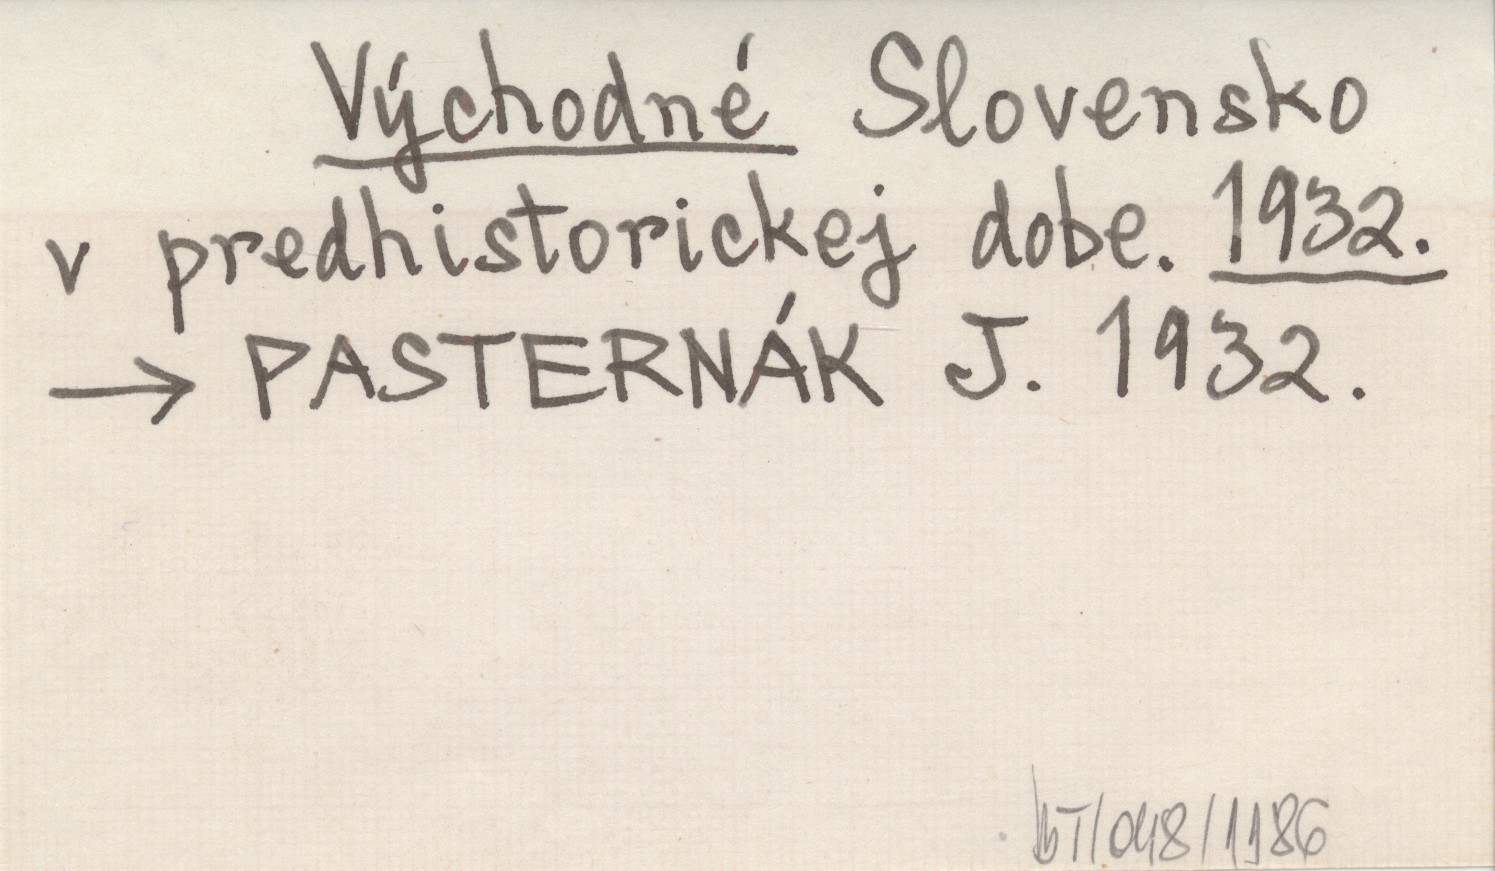 Východné Slovensko
v predhistorickej dobe. 1932.
→ PASTERNÁK J. 1932.
/048/1186